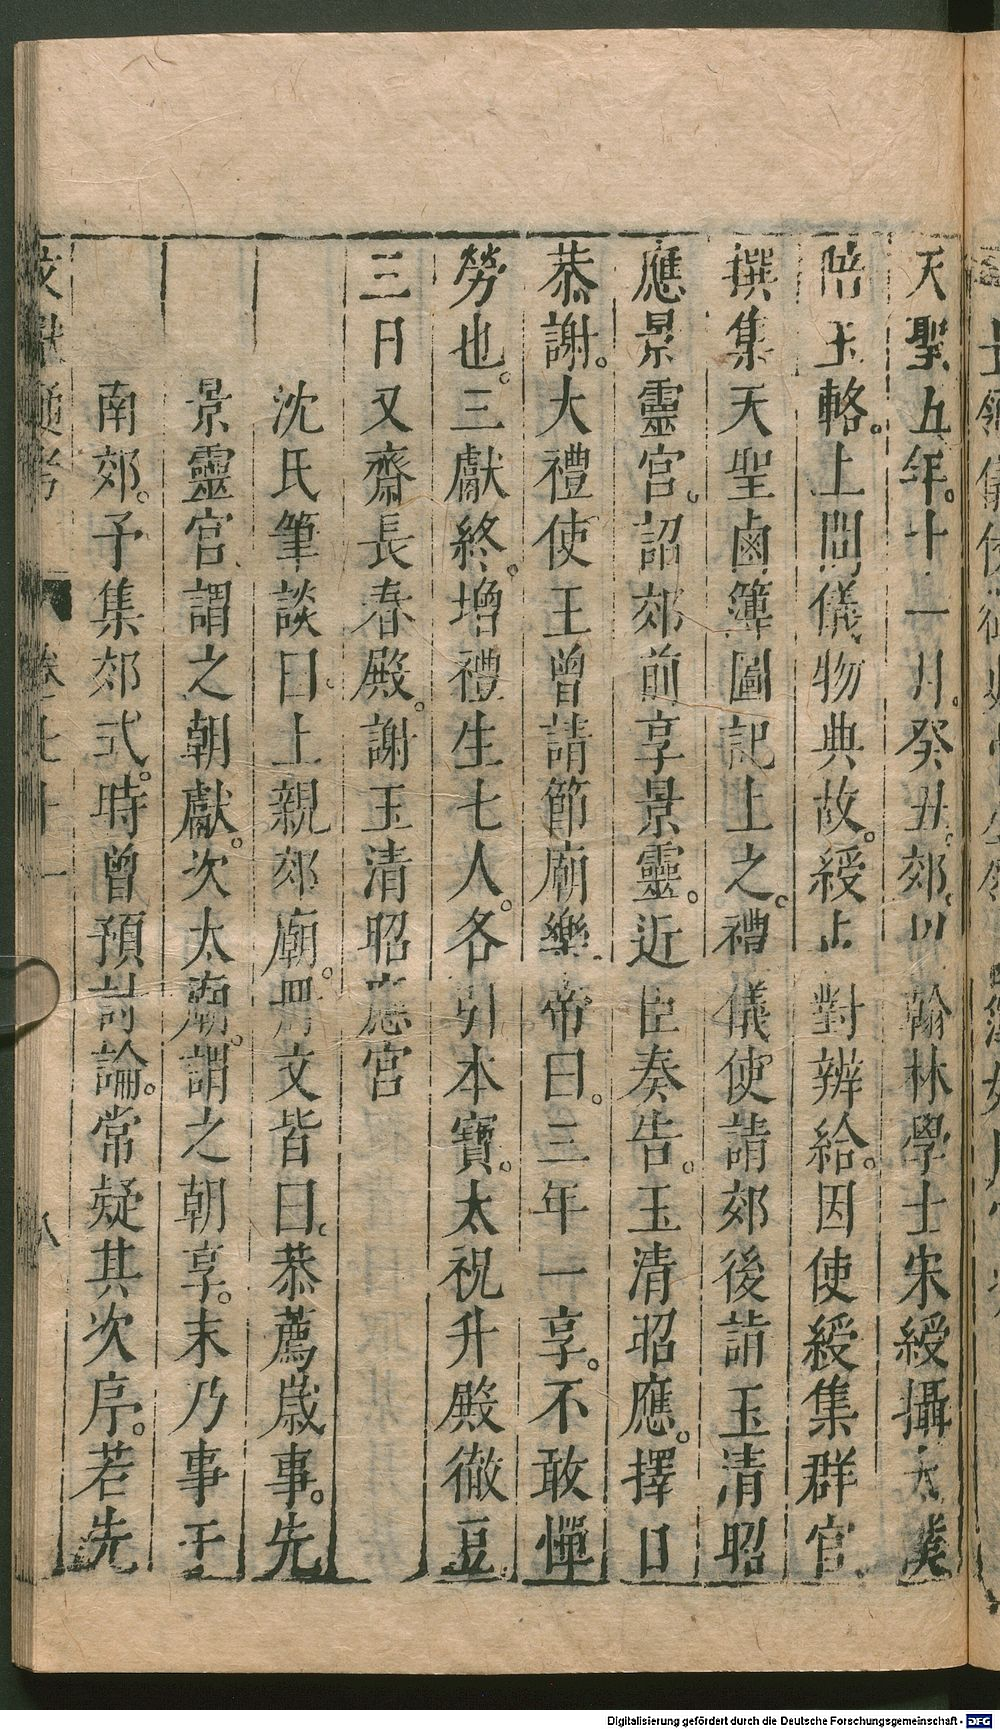 天聖五年。十一月。癸丑。郊。以翰林學士宋綬攝太僕
陪玉輅。上問儀物典故。綬占對辨給。因使綬集群官
撰集天聖鹵簿圖記上之。禮儀使請郊後請玉清昭
應景靈宮。詔郊前享景靈。近臣奏告。玉清昭應。擇日
恭謝。大禮使王曾請節廟樂。帝曰。三年一享。不敢憚
勞也。三獻終。增禮生七人。各引本寶。太祝升殿徹豆。
三日又齋長春殿。謝玉清昭應宮
沈氏筆談曰。上親郊廟。冊文皆曰。恭薦歲事。先
景靈宮。謂之朝獻。次太廟。謂之朝享。末乃事于
南郊。予集郊式。時曾預討論。常疑其次序。若先
文獻通考 卷七十一 八
Digitalisierung gefördert durch die Deutsche Forschungsgemeinschaft - DFG